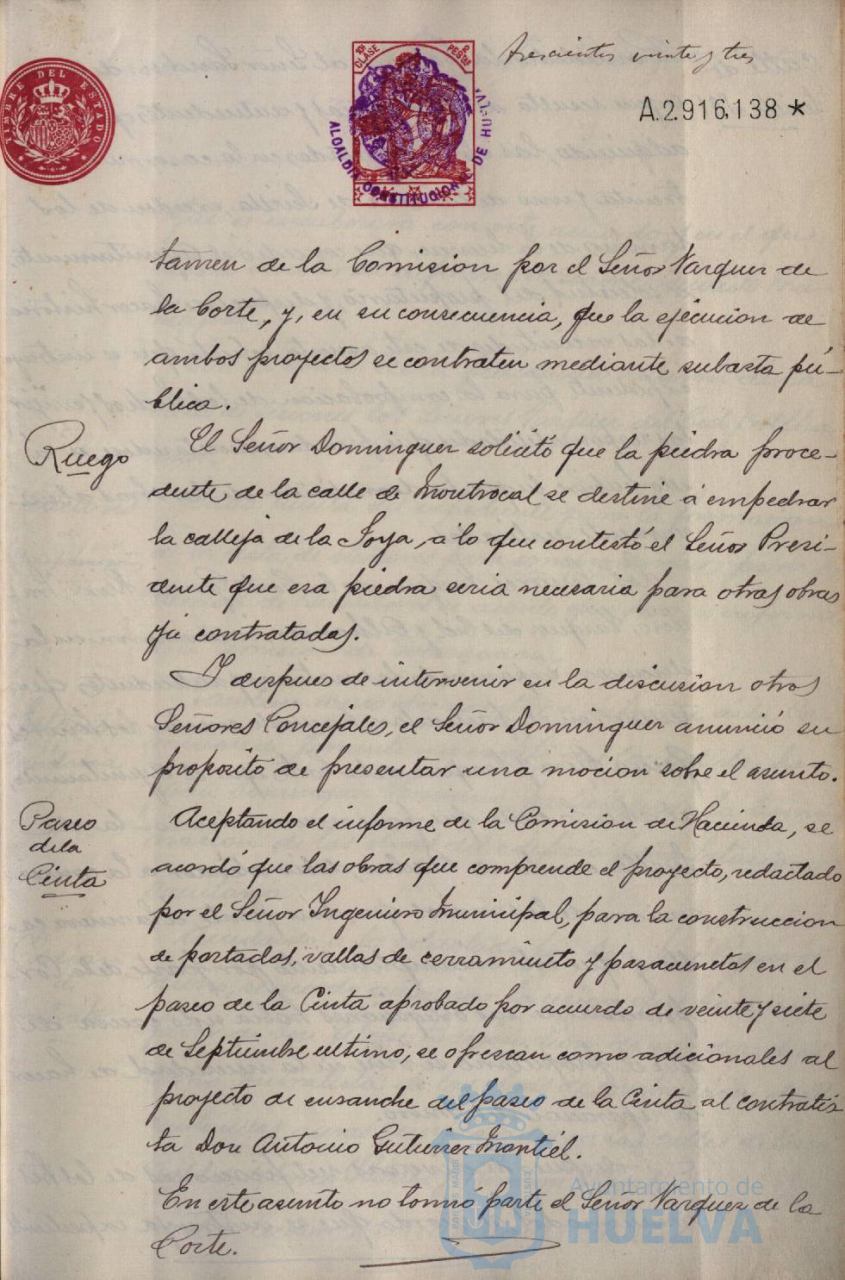 trescientos veinte y tres
TIMBRE DEL ESTADO
10ª CLASE
2 PESETAS
ALCALDIA CONSTITUCIONAL DE HUELVA
A.2.916.138 *
tamen de la Comision por el Señor Vazquez de
la Corte, y, en su consecuencia, que la ejecucion de
ambos proyectos se contraten mediante subasta pú-
blica.
Ruego
El Señor Dominguez solicitó que la piedra proce-
dente de la calle de Montrocal se destine á empedrar
la calleja de la Joya, a lo que contestó el Señor Presi-
dente que esa piedra seria necesaria para otras obras
ya contratadas.
Y despues de intervenir en la discusion otros
Señores Concejales, el Señor Dominguez anunció su
proposito de presentar una mocion sobre el asunto.
Paseo
de la
Cinta
Aceptando el informe de la Comision de Hacienda, se
acordó que las obras que comprende el proyecto, redactado
por el Señor Ingeniero Municipal, para la construccion
de portadas, vallas de cerramiento y pasacunetas en el
paseo de la Cinta aprobado por acuerdo de veinte y siete
de Septiembre ultimo, se ofrescan como adicionales al
proyecto de ensanche del paseo de la Cinta al contratis
ta Don Antonio Gutierrez Montiel.
En este asunto no tomó parte el Señor Vazquez de la
Corte.
Ayuntamiento de
HUELVA